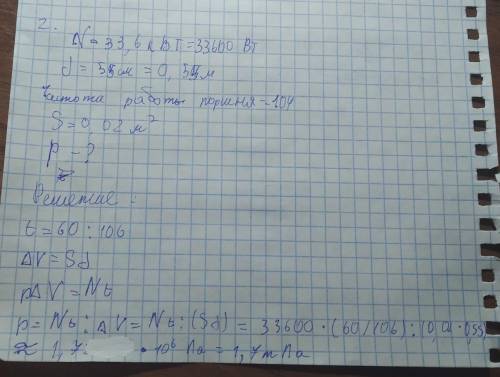 2.
N = 33,6 кВТ = 33600 Вт
d = 55 см = 0,55 м
Частота работы поршня - 104
S = 0,02 м²
p - ?
Решение:
t = 60 : 106
ΔV = Sd
pΔV = Nt
p = Nt : ΔV = Nt : (Sd) = 33600 · (60/106) : (0,02 · 0,55)
≈ 1,7 · 10⁶ Па = 1,7 мПа